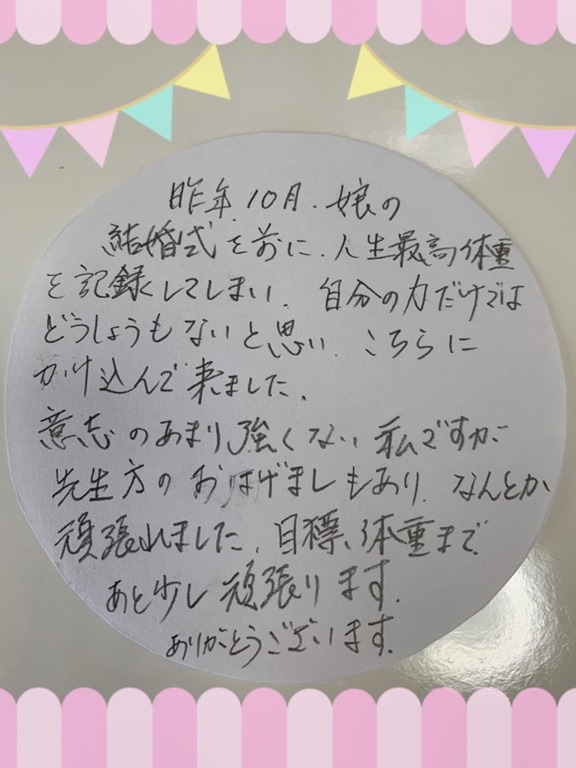 昨年、10月、娘の
結婚式を前に、人生最高体重
を記録してしまい、自分の力だけでは
どうしようもないと思い、こちらに
かけ込んで来ました。
意志のあまり強くない私ですが
先生方のおはげましもあり、なんとか
頑張れました。目標体重まで
あと少し頑張ります。
ありがとうございます。